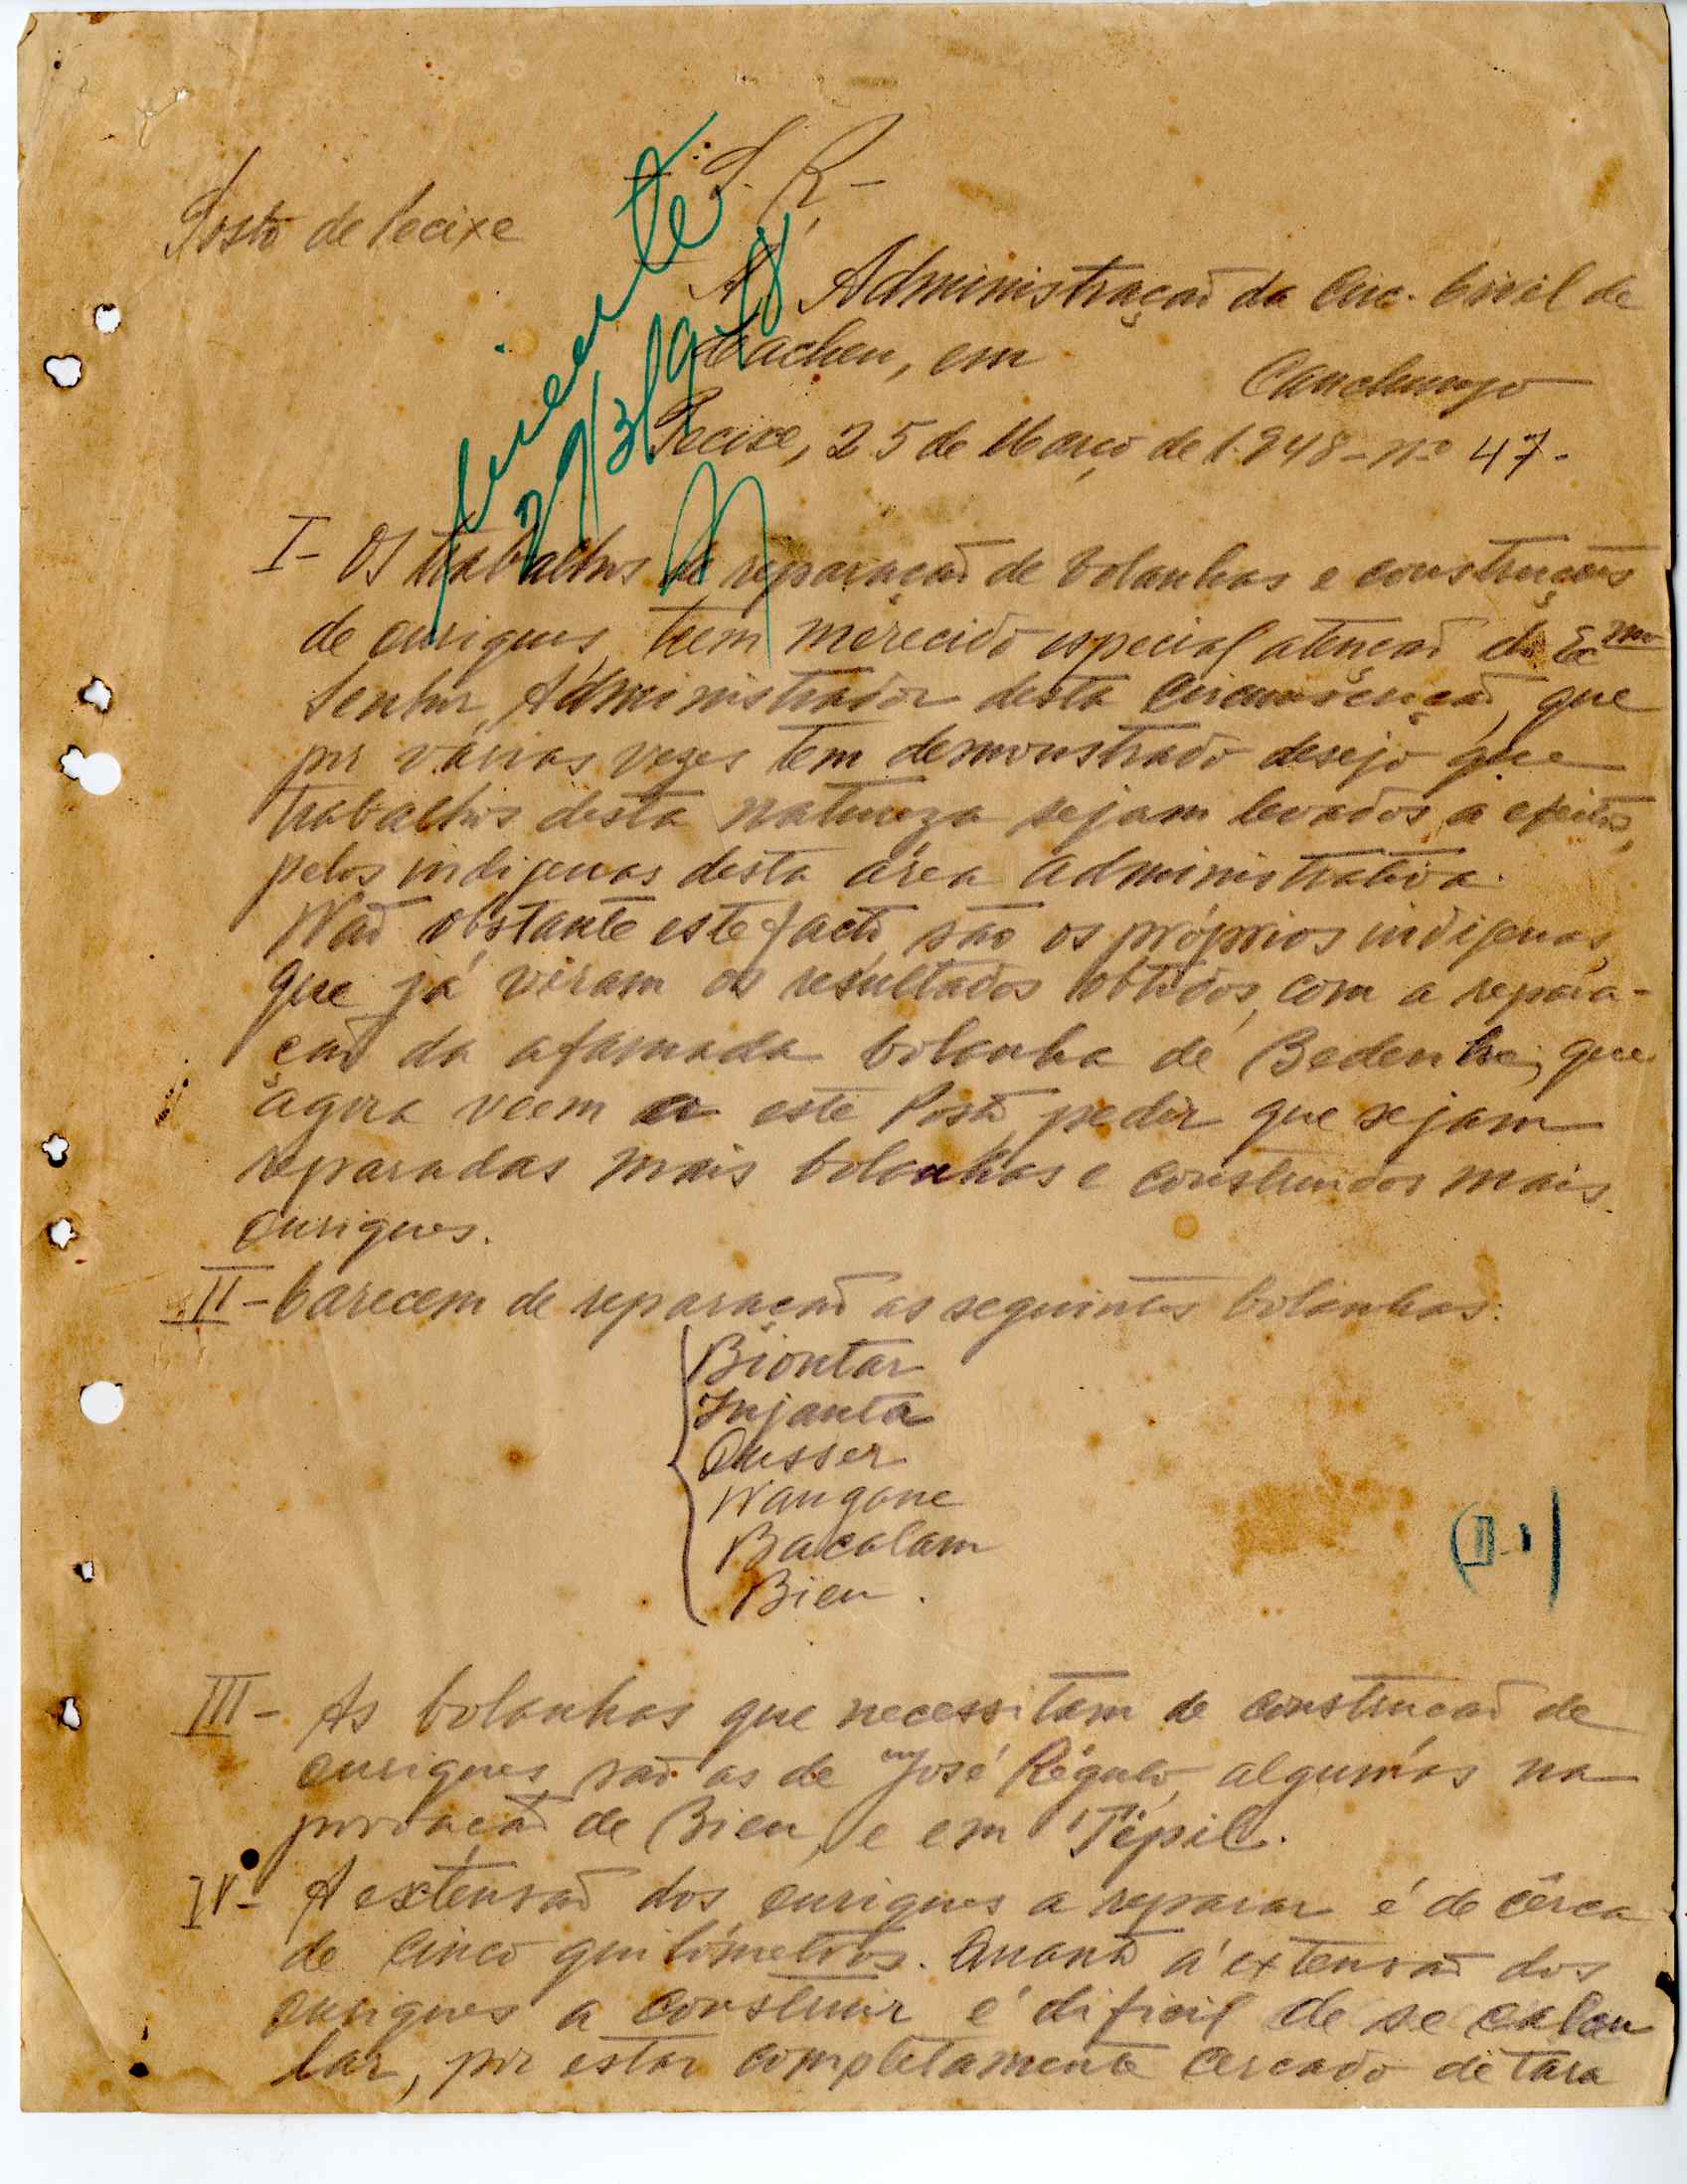 - S. R. -
Posto de Pecixe
Á Administração da Circ. Civil de
Cacheu, em
Canchungo
Pecixe, 25 de Março de 1.948 - nº 47.
29/3/948
I - Os trabalhos de reparação de bolanhas e construções
de ouriques, teem merecido especial atenção do Exmo
Senhor Administrador desta Circunscrição, que
por várias vezes tem demonstrado desejo que
trabalhos desta natureza sejam levados a efeitos,
pelos indigenas desta área administrativa.
Não obstante este facto, são os próprios indigenas,
que já viram os resultados obtidos, com a repara-
ção da afamada bolanha de que
agora veem a este Posto, pedir que sejam
reparadas mais bolanhas e construidos mais
ouriques.
II - Carecem de reparação as seguintes bolanhas:
Biontar
Injanta
Ousser
Nangone
Bacolam
Bieu.
(II-1)
III - As bolanhas que necessitam de construcão de
ouriques, são as de José Régulo, algumas na
povoação de Bieu, e em Tépil.
IV - A extensão dos ouriques a reparar é de cêrca
de cinco quilómetros. Quanto á extensão dos
ouriques a construir é dificil de se calcu
lar, por estar completamente cercado de tara